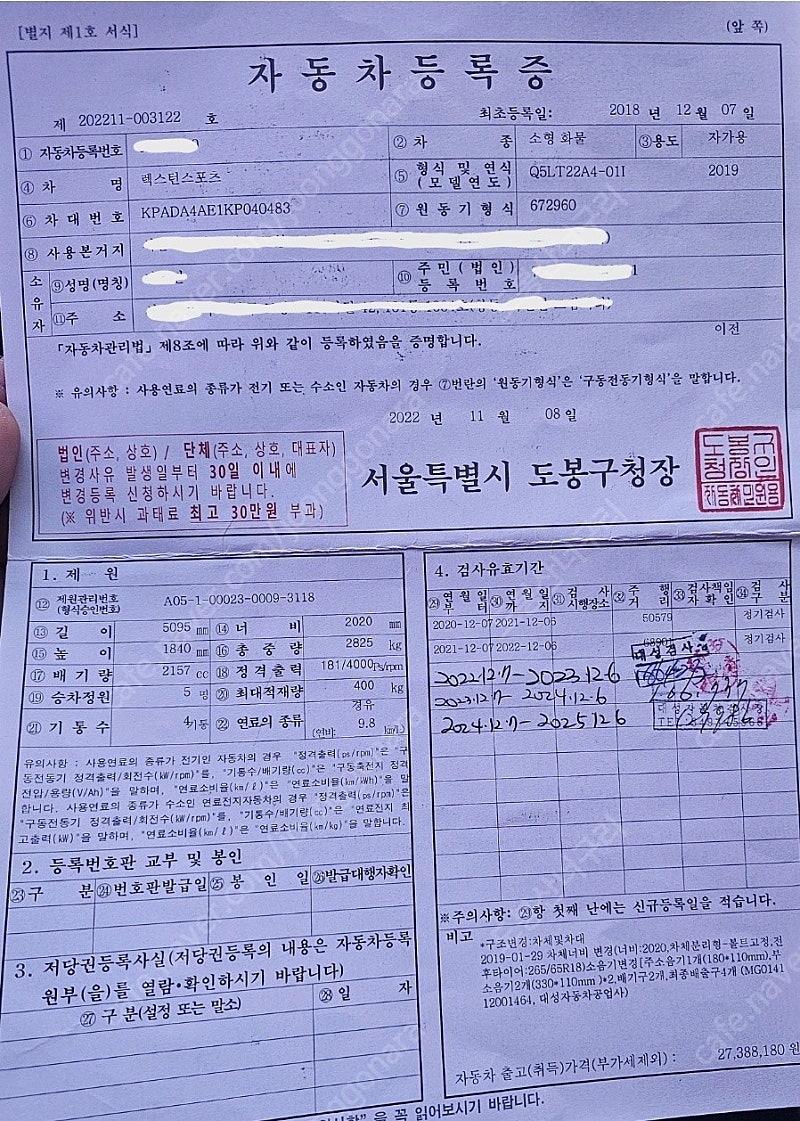 [별지 제1호 서식]
(앞 쪽)
자동차등록증
제 202211-003122 호
최초등록일: 2018 년 12 월 07 일
① 자동차등록번호 ② 차 종 소형 화물 ③용도 자가용
④ 차 명 렉스턴스포츠 ⑤ 형식 및 연식 (모델연도) Q5LT22A4-01I 2019
⑥ 차대번호 KPADA4AE1KP040483 ⑦ 원동기형식 672960
⑧ 사용본거지
소유자 ⑨성명(명칭) ⑩ 주민(법인) 등록번호
⑪주 소
이전
「자동차관리법」제8조에 따라 위와 같이 등록하였음을 증명합니다.
※ 유의사항 : 사용연료의 종류가 전기 또는 수소인 자동차의 경우 ⑦번란의 '원동기형식'은 '구동전동기형식'을 말합니다.
2022 년 11 월 08 일
법인(주소, 상호) / 단체(주소, 상호, 대표자)
변경사유 발생일부터 30일 이내에
변경등록 신청하시기 바랍니다.
(※ 위반시 과태료 최고 30만원 부과)
서울특별시 도봉구청장
1. 제 원
⑫ 제원관리번호 (형식승인번호) A05-1-00023-0009-3118
⑬ 길 이 5095 mm ⑭ 너 비 2020 mm
⑮ 높 이 1840 mm ⑯ 총 중 량 2825 kg
⑰ 배 기 량 2157 cc ⑱ 정격출력 181/4000 Ps/rpm
⑲ 승차정원 5 명 ⑳ 최대적재량 400 kg
㉑ 기 통 수 4기통 ㉒ 연료의 종류 경유
(연비: 9.8 km/L)
유의사항 : 사용연료의 종류가 전기인 자동차의 경우 "정격출력(ps/rpm)"은 "구
동전동기 정격출력/회전수(kW/rpm)"를, "기통수/배기량(cc)"은 "구동축전지 정격
전압/용량(V/Ah)"을 말하며, "연료소비율(km/ℓ)"은 "연료소비율(km/kWh)"을 말
합니다. 사용연료의 종류가 수소인 연료전지자동차의 경우 "정격출력(ps/rpm)"은
"구동전동기 정격출력/회전수(kW/rpm)"를, "기통수/배기량(cc)"은 "연료전지 최
고출력(kW)"을 말하며, "연료소비율(km/ℓ)"은 "연료소비율(km/kg)"을 말합니다.
2. 등록번호판 교부 및 봉인
㉓ 구 분 ㉔ 번호판발급일 ㉕ 봉 인 일 ㉖발급대행자확인
3. 저당권등록사실(저당권등록의 내용은 자동차등록
원부(을)를 열람·확인하시기 바랍니다)
㉗ 구 분(설정 또는 말소) ㉘ 일 자
4. 검사유효기간
㉙ 연 월 일 부 터 ㉚ 연 월 일 까 지 ㉛ 검 사 시행장소 ㉜ 주 행 거 리 ㉝ 검사책임 자확인 ㉞ 검 사 구 분
2020-12-07 2021-12-06 50579 정기검사
2021-12-07 2022-12-06 정기검사
2022.12.7 - 2023.12.6
2023.12.7 - 2024.12.6
2024.12.7 - 2025.12.6
※주의사항: ㉙항 첫째 난에는 신규등록일을 적습니다.
비고
*구조변경:차체및차대
2019-01-29 차체너비 변경(너비:2020,차체분리형-볼트고정,전
후타이어:265/65R18)소음기변경[주소음기1개(180*110mm),부
소음기2개(330*110mm )*2,배기구2개,최종배출구4개 (MG0141
12001464, 대성자동차공업사)
자동차 출고(취득)가격(부가세제외) : 27,388,180 원
" 을 꼭 읽어보시기 바랍니다.